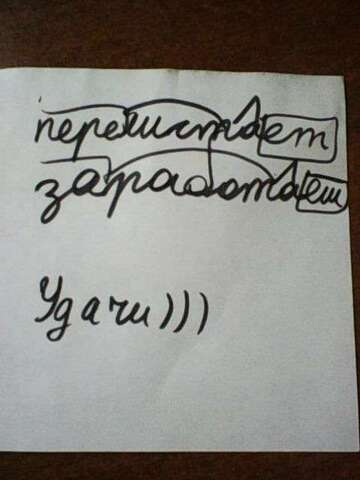 перелистает
заработает
Удачи)))